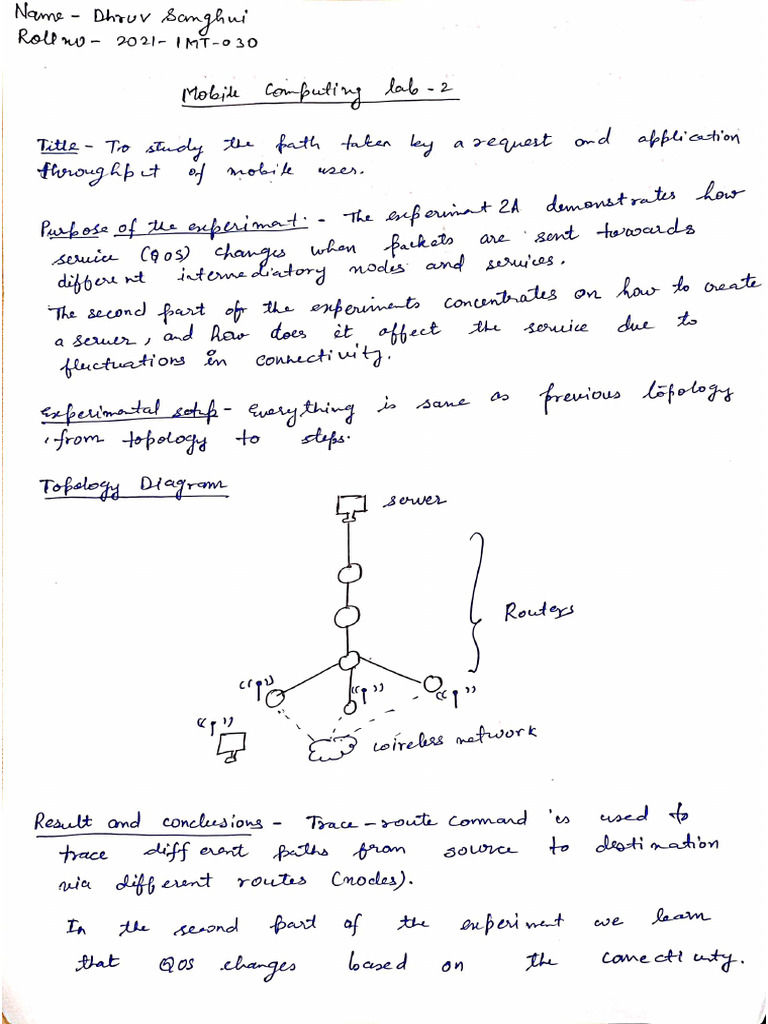 Name - Dhruv Sanghui
Roll no - 2021-IMT-030
Mobile Computing lab - 2
Title - To study the path taken by a request and application
throughput of mobile user.
Purpose of the experimant. - The experimant 2A demonstrates how
service (QOS) changes when packets are sent towards
different intermediatory nodes and services.
The second part of the experiments concentrates on how to create
a server, and how does it affect the service due to
fluctuations in connectivity.
Experimental setup - Everything is same as previous topology
from topology to steps.
Topology Diagram
server
Routers
wireless network
Result and conclusions - Trace-route command is used to
trace different paths from source to destination
via different routes (nodes).
In the second part of the experiment we learn
that QOS changes based on the connectivity.